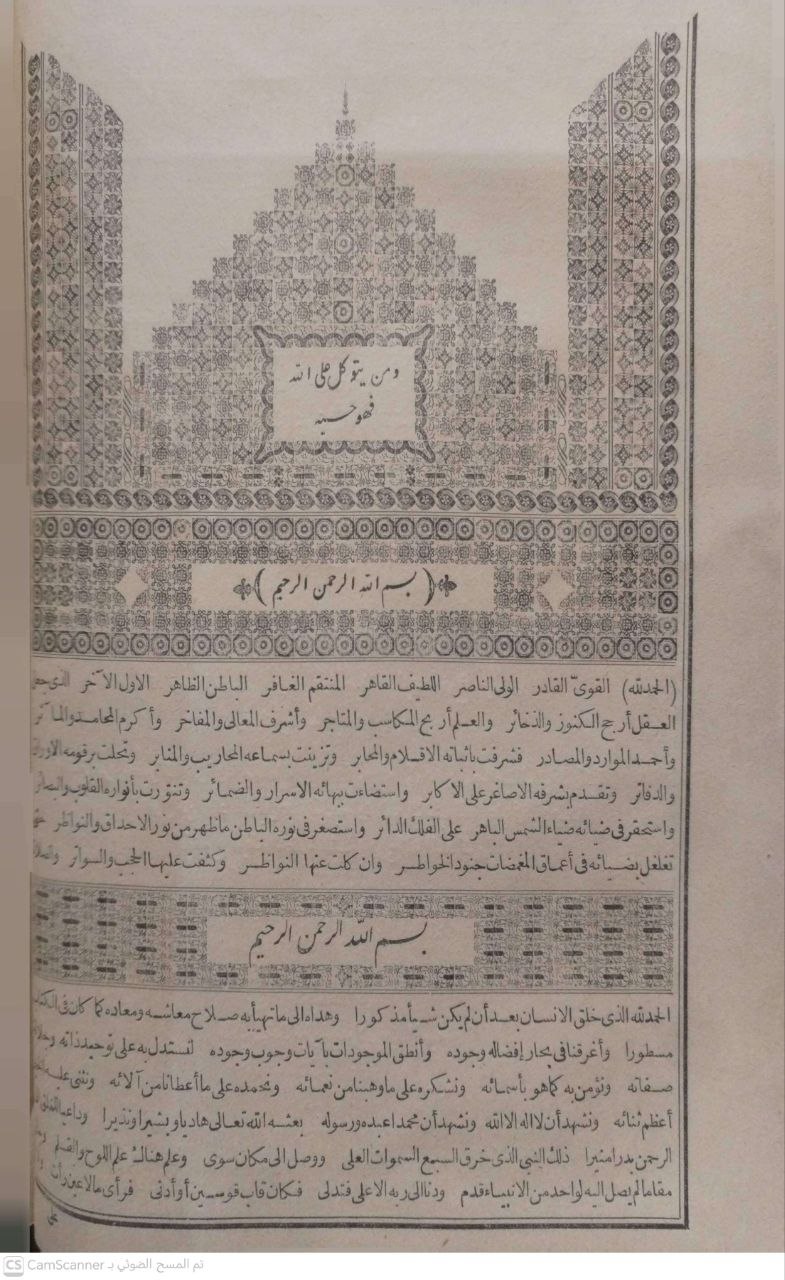 ومن يتوكل على الله
فهو حسبه
(بسم الله الرحمن الرحيم)
(الحمد لله) القوىّ القادر الولى الناصر اللطيف القاهر المنتقم الغافر الباطن الظاهر الاول الآخر الذى جعل
العقل أرجح الكنوز والذخائر والعلم أربح المكاسب والمتاجر وأشرف المعالى والمفاخر وأكرم المحامد والمآثر
وأحمد الموارد والمصادر فشرفت باثباته الاقلام والمحابر وتزينت بسماعه المحاريب والمنابر وتحلت برقومه الاوراق
والدفاتر وتقدم بشرفه الاصاغر على الاكابر واستضاءت ببهائه الاسرار والضمائر وتنورت بأنواره القلوب والبصائر
واستحقر فى ضيائه ضياء الشمس الباهر على الفلك الدائر واستصغر فى نوره الباطن ما ظهر من نور الاحداق والنواظر حتى
تغلغل بضيائه فى أعماق المغمضات جنود الخواطر وان كلت عنها النواظر وكثفت عليها الحجب والسواتر والصلاة
بسم الله الرحمن الرحيم
الحمد لله الذى خلق الانسان بعد أن لم يكن شيأ مذكورا وهداه الى ما تهيأ به صلاح معاشه ومعاده كما كان فى الكتاب
مسطورا وأغرقنا فى بحار إفضاله وجوده وأنطق الموجودات بآيات وجوب وجوده لنستدل به على توحيد ذاته
صفاته ونؤمن به كما هو بأسمائه ونشكره على ما وهبنا من نعمائه ونحمده على ما أعطانا من آلائه ونثنى عليه
أعظم ثنائه ونشهد أن لا اله الا الله ونشهد أن محمدا عبده ورسوله بعثه الله تعالى هاديا وبشيرا ونذيرا وداعيا
الرحمن بدرا منيرا ذلك النبى الذى خرق السبع السموات العلى ووصل الى مكان سوى وعلم هناك علم اللوح والقلم
مقاما لم يصل اليه لواحد من الانبياء قدم ودنا الى ربه الاعلى فتدلى فكان قاب قوسين أو أدنى فرأى ما لا عين رأت
على
CS CamScanner تم المسح الضوئي بـ